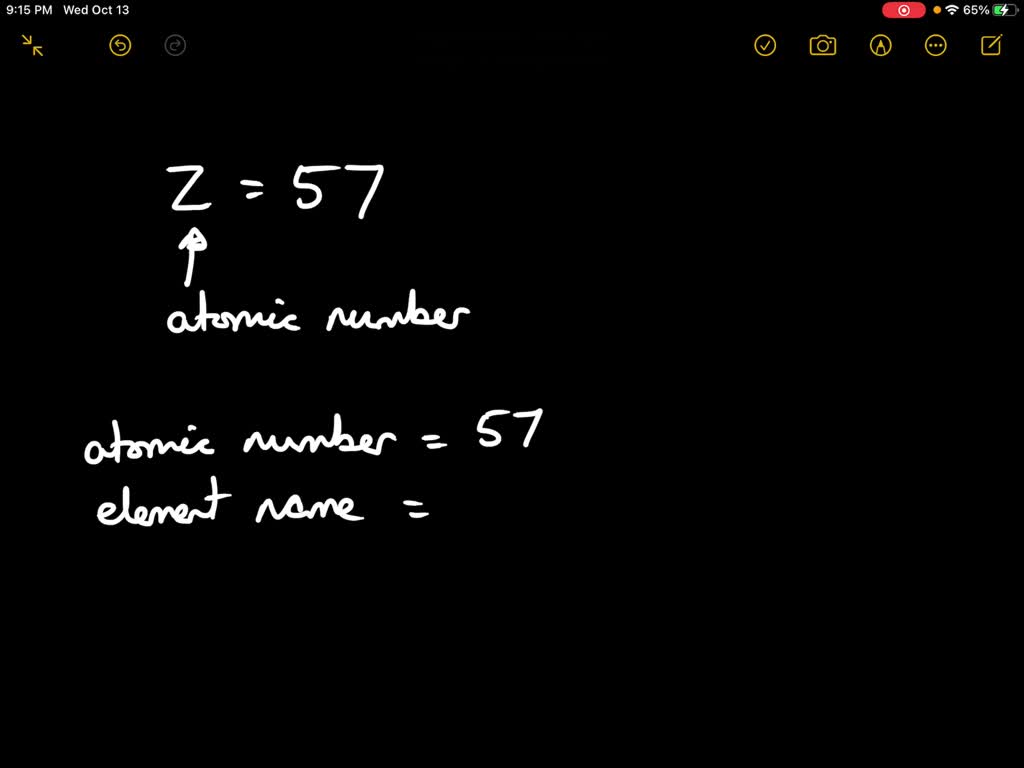 9:15 PM Wed Oct 13 65%
Z = 57
atomic number
atomic number = 57
element name =